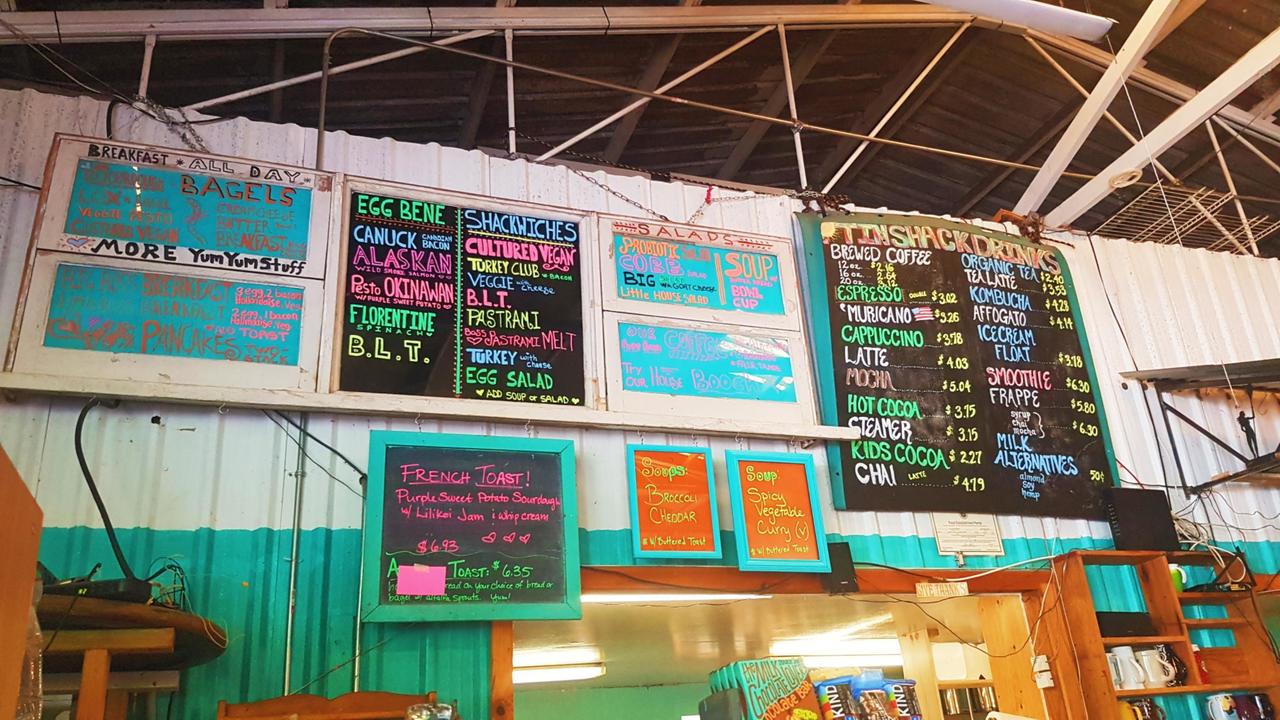 BREAKFAST * ALL DAY *
BAGELS
VEGGIE PESTO
CULTURED VEGAN
CREAMCHEESE
BUTTER
BREAKFAST
MORE YumYumStuff
BIG BOSS BREAKFAST
3 egg, 2 bacon
2 egg, 1 bacon
TOAST
PANCAKES
EGG BENE
CANUCK CANADIAN BACON
ALASKAN
WILD SMOKE SALMON
Pesto OKINAWAN
W/ PURPLE SWEET POTATO
FLORENTINE
SPINACH
B.L.T.
SHACKWICHES
CULTURED VEGAN
TURKEY CLUB W/ BACON
VEGGIE with cheese
B.L.T.
PASTRAMI
Boss PASTRAMI MELT
TURKEY with cheese
EGG SALAD
♥ ADD SOUP or SALAD ♥
SALADS
PROBIOTIC
COBB SALAD
BIG W/ GOAT CHEESE
Little HOUSE SALAD
SOUP
BOWL
CUP
OUR
COFFEE
TRY
OUR HOUSE
TIN SHACK DRINKS
BREWED COFFEE
12 oz
16 oz
20 oz
ESPRESSO DOUBLE $3.02
'MURICANO $3.26
CAPPUCCINO $3.78
LATTE $4.03
MOCHA $5.04
HOT COCOA $3.15
STEAMER $3.15
KIDS COCOA $2.27
CHAI LATTE $4.79
ORGANIC TEA $2.40
TEA LATTE
KOMBUCHA $4.28
AFFOGATO $4.14
ICECREAM
FLOAT $3.78
SMOOTHIE $6.30
FRAPPE $5.80
syrup
chai
mocha $6.30
MILK
ALTERNATIVES 50¢
almond
soy
hemp
FRENCH TOAST!
Purple Sweet Potato Sourdough
w/ Lilikoi Jam & whip cream
$6.93
TOAST: $6.35
on your choice of bread or
bagel w/ alfalfa sprouts. Yum!
Soups:
BROCCOLI
CHEDDAR
w/ Buttered Toast
Soup:
Spicy
Vegetable
Curry (V)
w/ Buttered Toast
GIVE THANKS
KIND
KIND